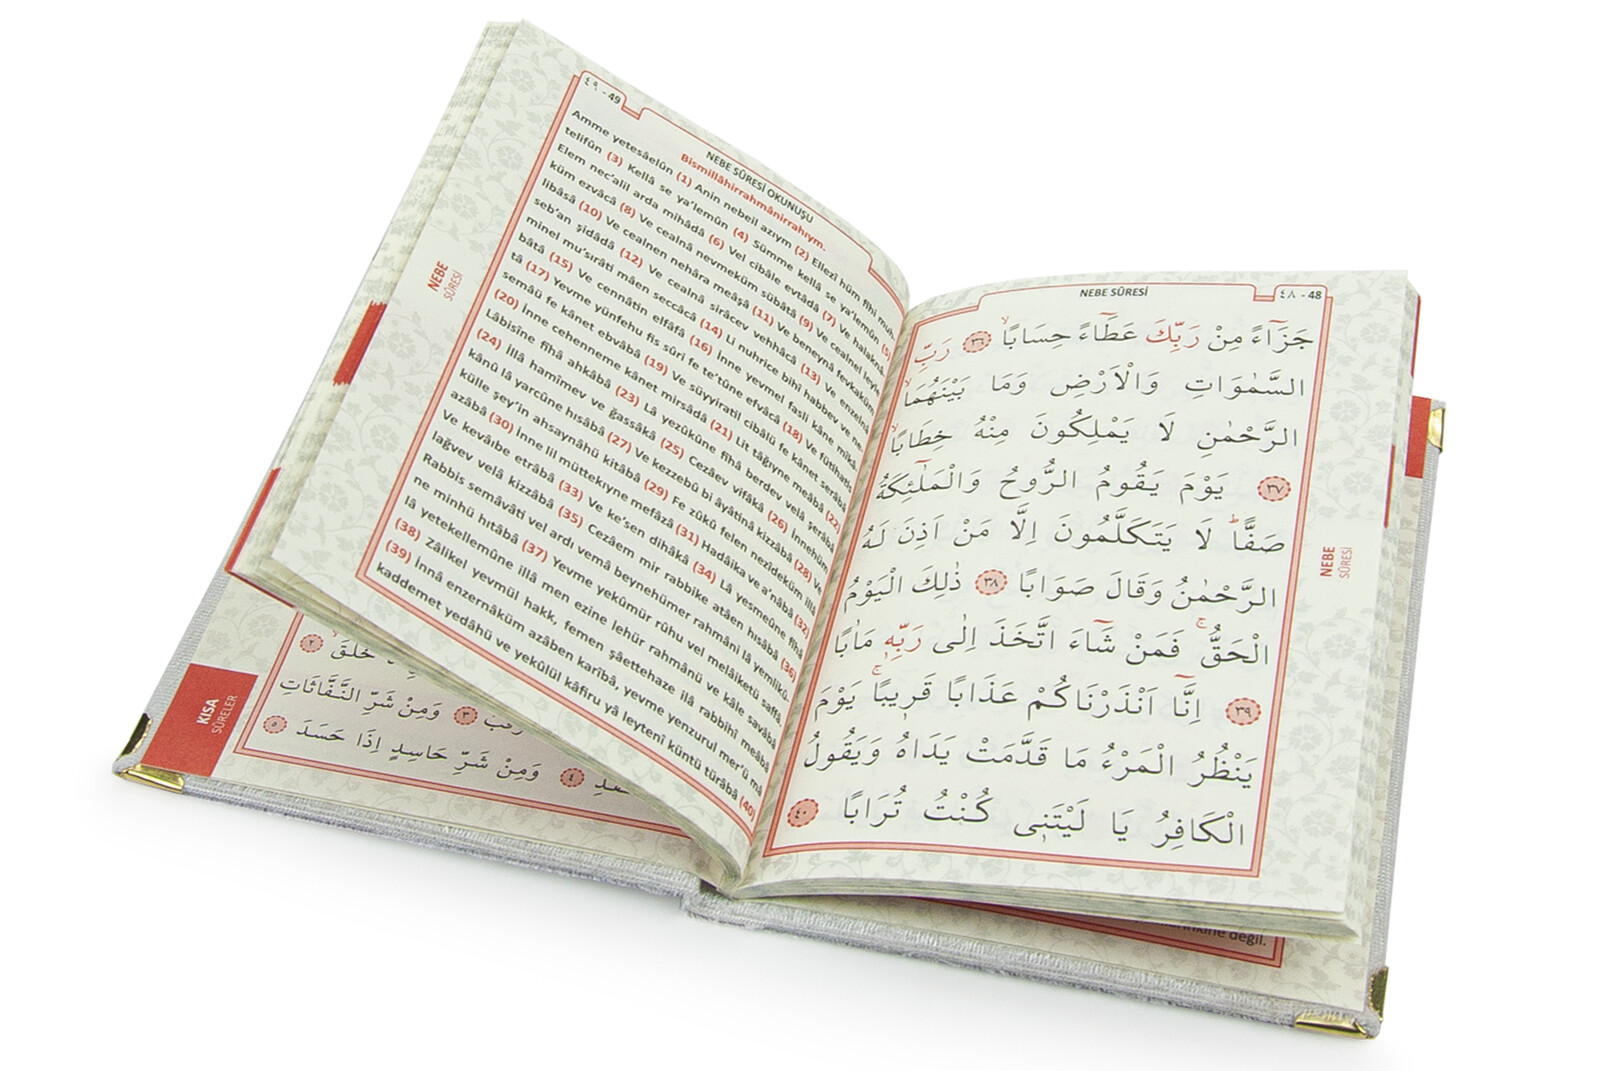 ٤٨ - 48
NEBE SÛRESİ
جَزَٓاءً مِنْ رَبِّكَ عَطَٓاءً حِسَابًاۙ ﴿٣٦﴾ رَبِّ
السَّمٰوَاتِ وَالْاَرْضِ وَمَا بَيْنَهُمَا
الرَّحْمٰنِ لَا يَمْلِكُونَ مِنْهُ خِطَابًاۙ
﴿٣٧﴾ يَوْمَ يَقُومُ الرُّوحُ وَالْمَلٰٓئِكَةُ
صَفًّاۜ لَا يَتَكَلَّمُونَ اِلَّا مَنْ اَذِنَ لَهُ
الرَّحْمٰنُ وَقَالَ صَوَابًا ﴿٣٨﴾ ذٰلِكَ الْيَوْمُ
الْحَقُّۚ فَمَنْ شَٓاءَ اتَّخَذَ اِلٰى رَبِّه۪ مَاٰبًا
﴿٣٩﴾ اِنَّٓا اَنْذَرْنَاكُمْ عَذَابًا قَر۪يبًاۚ يَوْمَ
يَنْظُرُ الْمَرْءُ مَا قَدَّمَتْ يَدَاهُ وَيَقُولُ
الْكَافِرُ يَا لَيْتَن۪ى كُنْتُ تُرَابًا ﴿٤٠﴾
NEBE
SÛRESİ
٤٩ - 49
NEBE SÛRESİ OKUNUŞU
Bismillâhirrahmânirrahıym.
Amme yetesâelûn (1) Anin nebeil azıym (2) Ellezî hüm fîhi muh-
telifûn (3) Kellâ se ya'lemûn (4) Sümme kellâ se ya'lemûn (5)
Elem nec'alil arda mihâdâ (6) Vel cibâle evtâdâ (7) Ve halaknâ-
küm ezvâcâ (8) Ve cealnâ nevmeküm sübâtâ (9) Ve cealnel leyle
libâsâ (10) Ve cealnen nehâra meâşâ (11) Ve beneynâ fevkaküm
seb'an şidâdâ (12) Ve cealnâ sirâcev vehhâcâ (13) Ve enzelnâ
minel mu'sırâti mâen seccâcâ (14) Li nuhrice bihî habbev ve ne-
bâtâ (15) Ve cennâtin elfâfâ (16) İnne yevmel fasli kâne mîkâ-
tâ (17) Yevme yünfehu fis sûri fe te'tûne efvâcâ (18) Ve fütihatis
semâü fe kânet ebvâbâ (19) Ve süyyiratil cibâlü fe kânet serâbâ
(20) İnne cehenneme kânet mirsâdâ (21) Lit tâğıyne meâbâ (22)
Lâbisîne fîhâ ahkâbâ (23) Lâ yezûkûne fîhâ berdev velâ şerâbâ
(24) İllâ hamîmev ve ğassâkâ (25) Cezâev vifâkâ (26) İnnehüm
kânû lâ yarcûne hısâbâ (27) Ve kezzebû bi âyâtinâ kizzâbâ (28) Ve
külle şey'in ahsaynâhü kitâbâ (29) Fe zûkû felen nezîdeküm illâ
azâbâ (30) İnne lil müttekıyne mefâzâ (31) Hadâika ve a'nâbâ (32)
Ve kevâıbe etrâbâ (33) Ve ke'sen dihâkâ (34) Lâ yesmeûne fîhâ
lağvev velâ kizzâbâ (35) Cezâem mir rabbike atâen hısâbâ (36)
Rabbis semâvâti vel ardı vemâ beynehümer rahmâni lâ yemlikû-
ne minhü hıtâbâ (37) Yevme yekûmür rûhu vel melâiketü saffâ.
lâ yetekellemûne illâ men ezine lehür rahmânü ve kâle savâbâ
(38) Zâlikel yevmül hakk, femen şâettehaze ilâ rabbihî meâbâ
(39) İnnâ enzernâküm azâben karîbâ, yevme yenzurul mer'ü mâ
kaddemet yedâhü ve yekûlül kâfiru yâ leytenî küntü türâbâ (40)
NEBE
SÛRESİ
KISA
SÛRELER
﴿٢﴾ خَلَقَۙ
﴿٣﴾ وَمِنْ شَرِّ النَّفَّاثَاتِ
﴿٤﴾ وَمِنْ شَرِّ حَاسِدٍ اِذَا حَسَدَ ﴿٥﴾
değil.